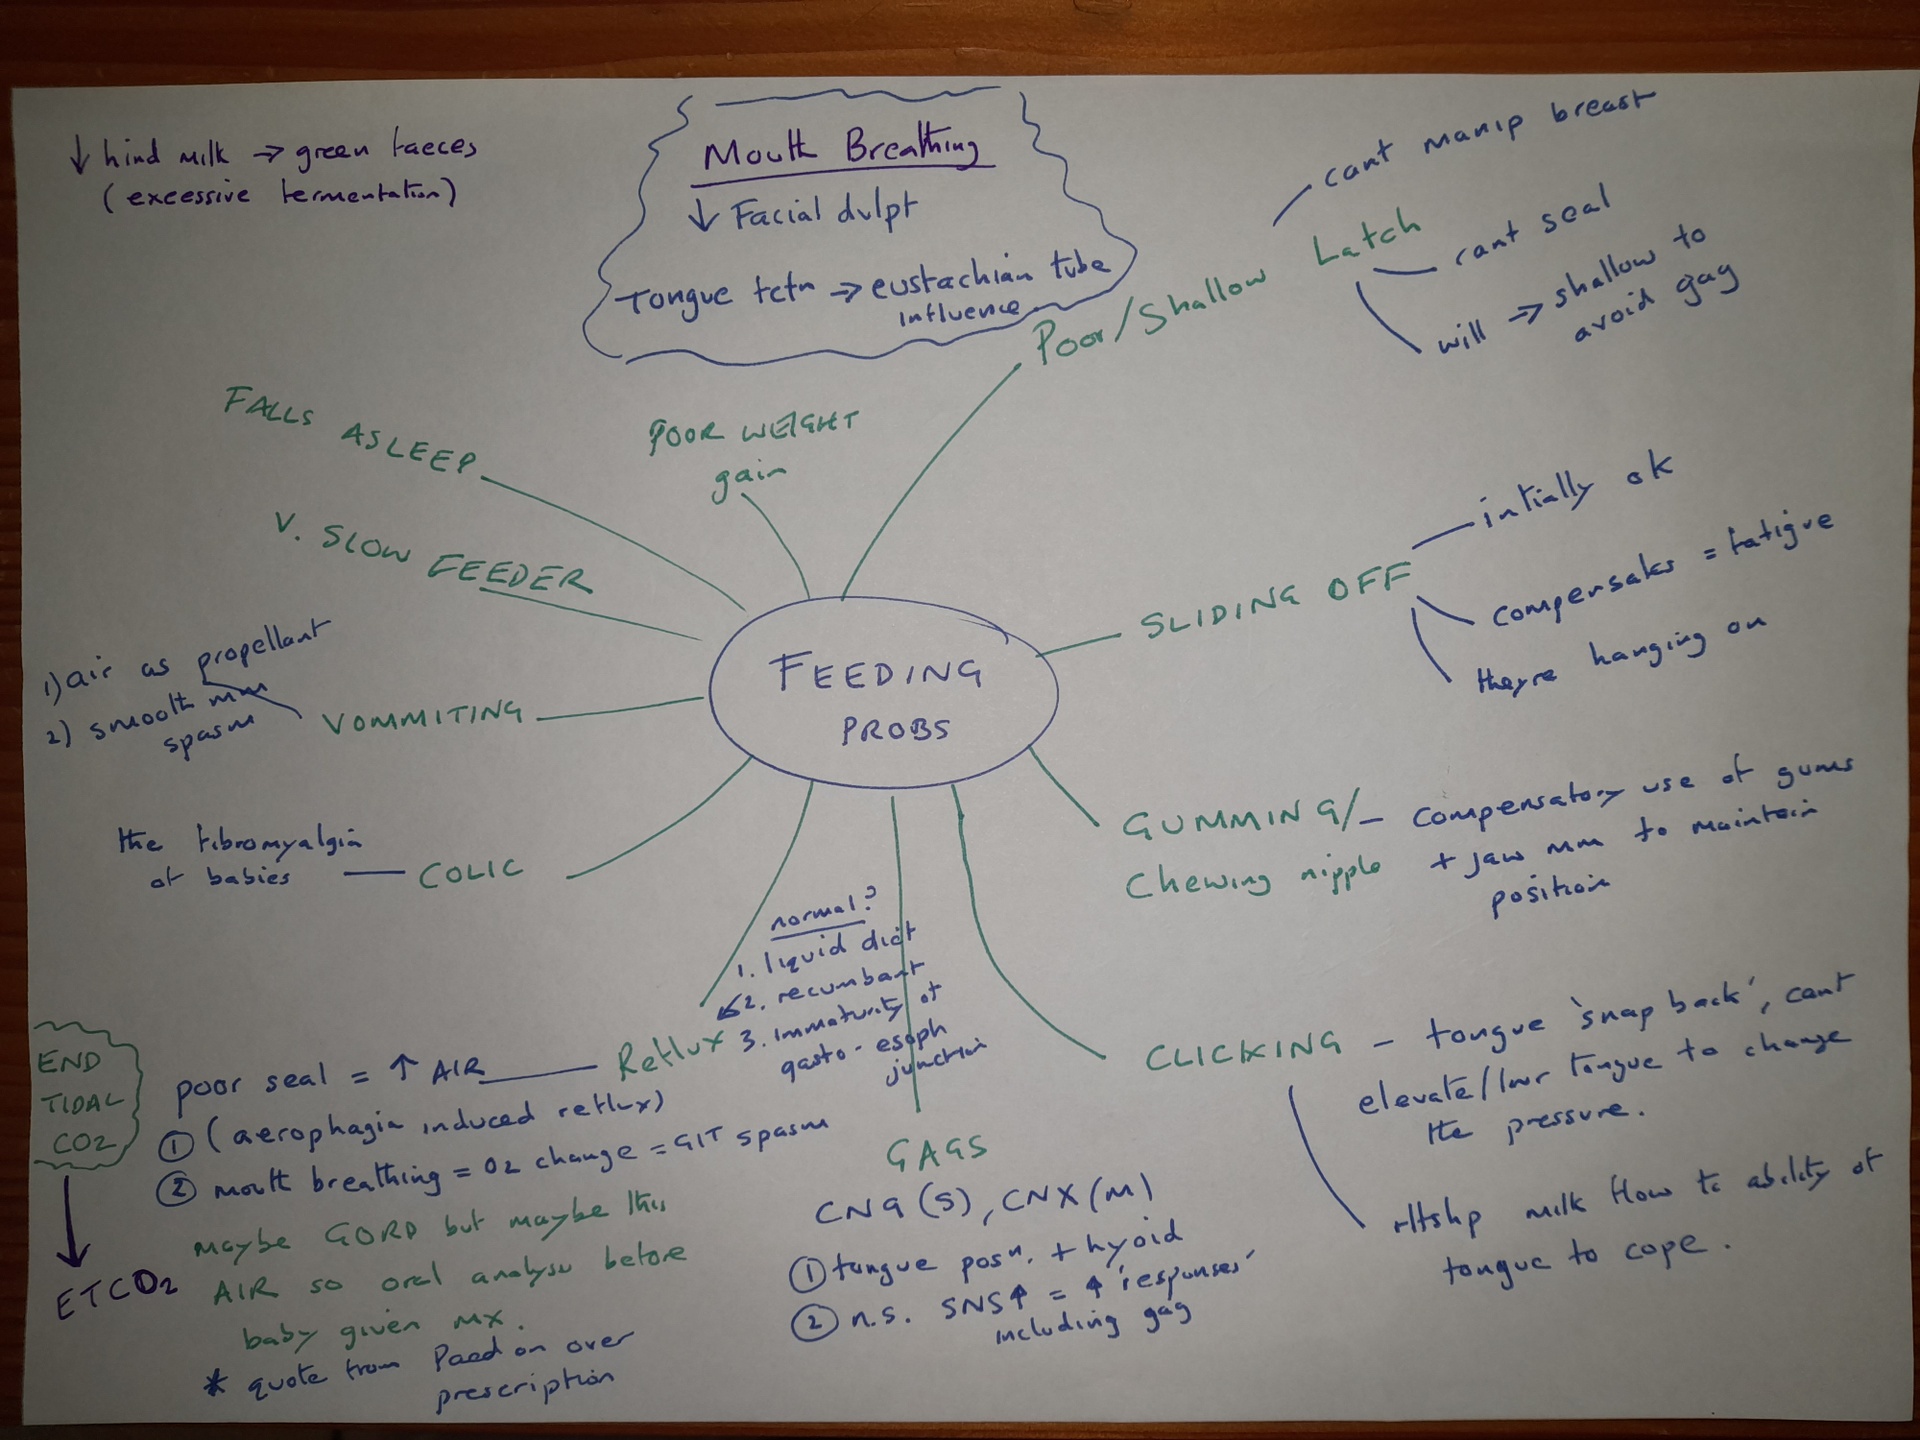 ↓ hind milk → green faeces
(excessive fermentation)
Mouth Breathing
↓ Facial dvlpt
Tongue fctn → eustachian tube
influence
Poor/Shallow Latch
cant manip breast
cant seal
will → shallow to
avoid gag
FALLS ASLEEP
POOR WEIGHT
gain
V. SLOW FEEDER
SLIDING OFF
intially ok
compensates = fatigue
theyre hanging on
FEEDING
PROBS
1) air as propellant
2) smooth mm
spasm
VOMMITING
GUMMING/
Chewing nipple
– compensatory use of gums
+ jaw mm to maintain
position
the fibromyalgia
of babies
COLIC
normal?
1. liquid diet
2. recumbant
3. immaturity of
gasto-esoph
junction
Reflux
poor seal = ↑ AIR
① (aerophagia induced reflux)
② mouth breathing = O2 change = GIT spasm
maybe GORD but maybe this
AIR so oral analysis before
baby given mx.
* quote from Paed on over
prescription
END
TIDAL
CO2
ETCO2
GAGS
CN9 (S), CNX (M)
① tongue posn. + hyoid
② n.s. SNS↑ = ↑ 'responses'
including gag
CLICKING – tongue 'snap back', cant
elevate/lowr tongue to change
the pressure.
rltshp milk flow to ability of
tongue to cope.